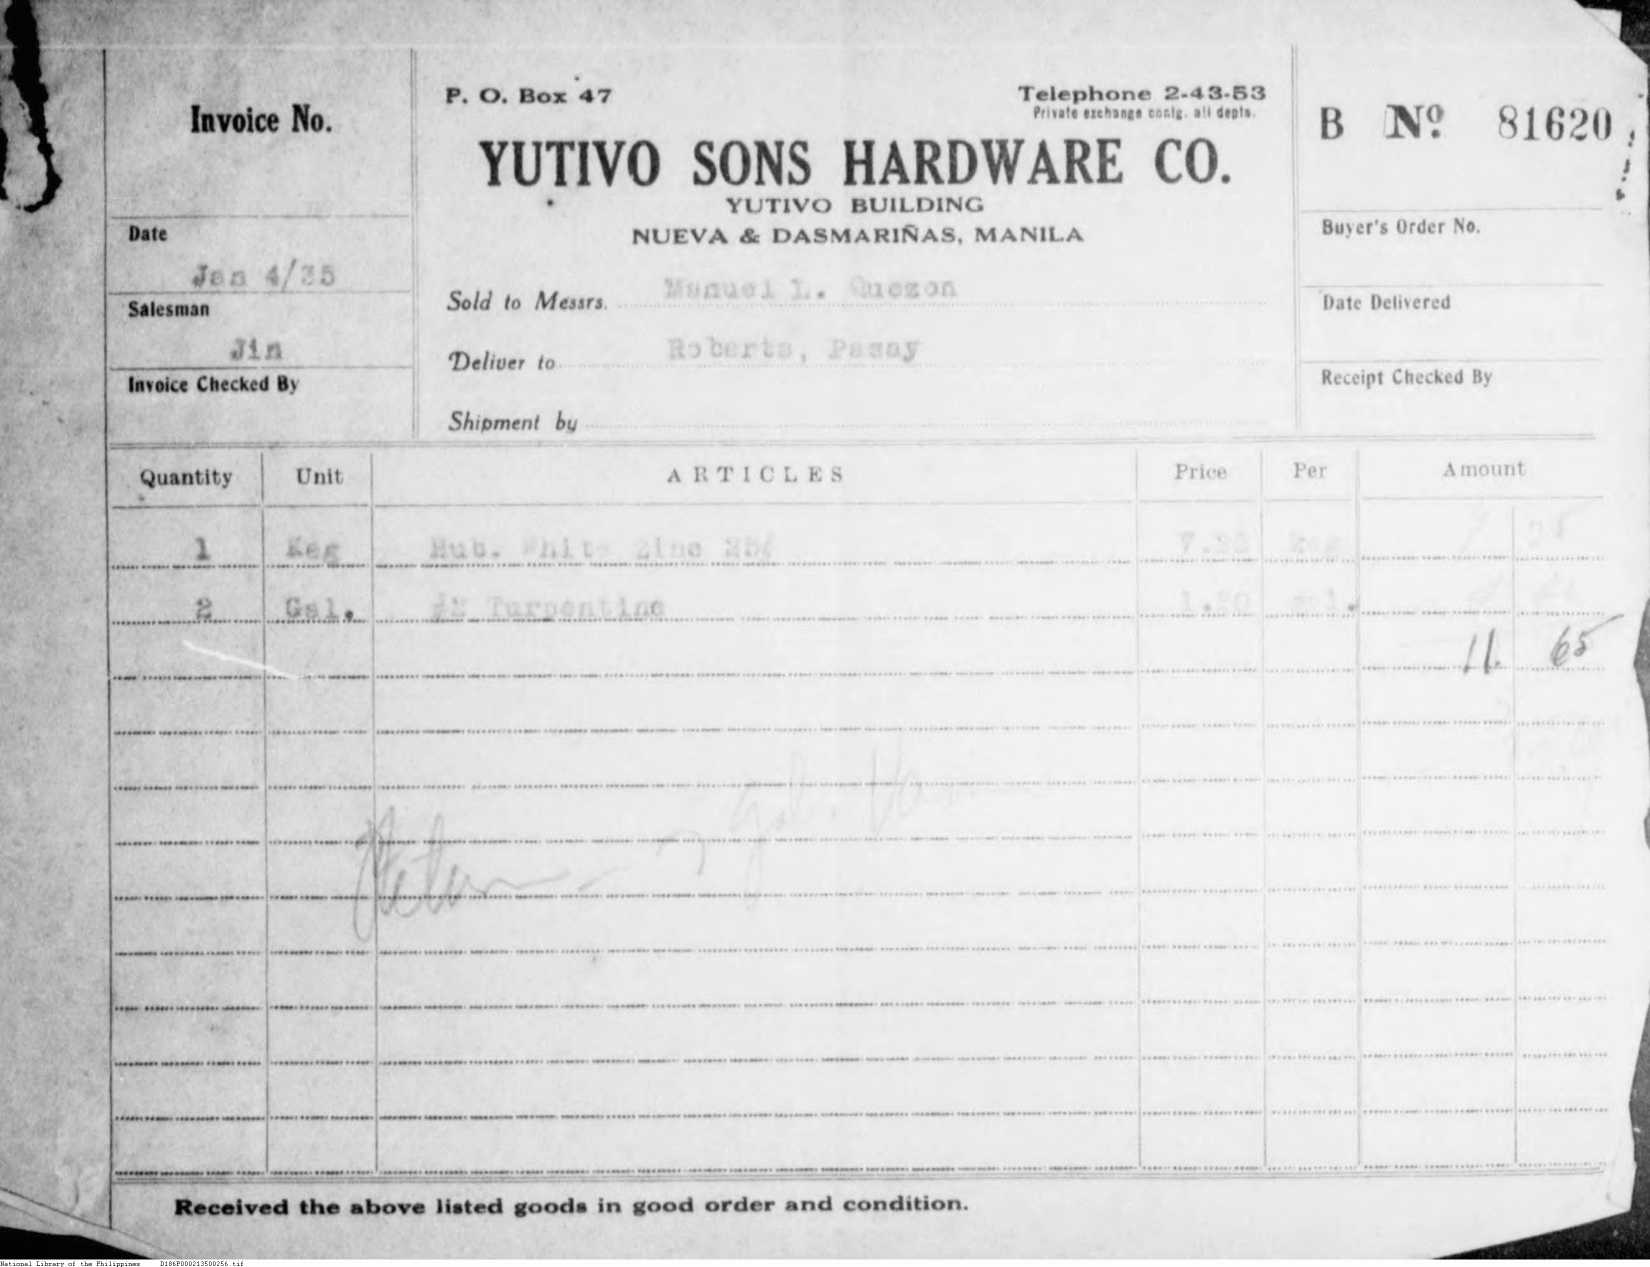 P. O. Box 47
Telephone 2-43-53
Private exchange contg. all depts.
Invoice No.
B Nº 81620
YUTIVO SONS HARDWARE CO.
YUTIVO BUILDING
NUEVA & DASMARIÑAS, MANILA
Date
Jan 4/35
Buyer's Order No.
Sold to Messrs. Manuel L. Quezon
Salesman
Jin
Date Delivered
Deliver to Roberts, Pasay
Invoice Checked By
Receipt Checked By
Shipment by
Quantity Unit ARTICLES Price Per Amount
1 Keg Hub. White Zinc
2 Gal. Turpentine
11. 65
Received the above listed goods in good order and condition.
National Library of the Philippines D186P000213500256.tif